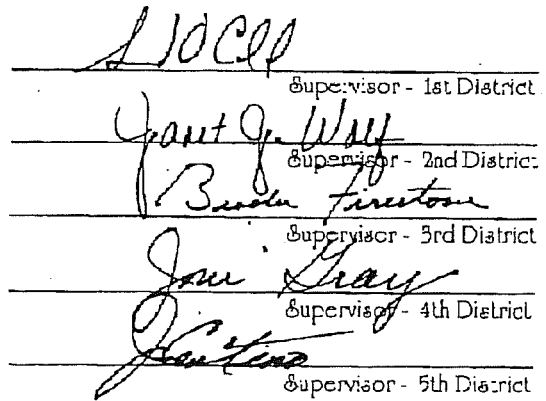 Supervisor - 1st District
Janet G. Wolf
Supervisor - 2nd District
Firestone
Supervisor - 3rd District
Joni Gray
Supervisor - 4th District
Supervisor - 5th District